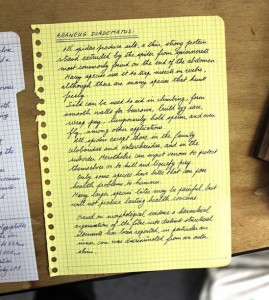 ARANEUS DIADEMATUS:
All spiders produce silk, a thin, strong protein
strand extruded by the spider from spinnerets
most commonly found on the end of the abdomen.
Many species use it to trap insects in webs,
although there are many species that hunt
freely.
Silk can be used to aid in climbing, form
smooth walls for burrows, build egg sacs,
wrap prey, temporarily hold sperm, and even
fly, among other applications.
All spiders except those in the family
Uloboridae and Holarchaeidae, and in the
suborder Mesothelae can inject venom to protect
themselves or to kill and liquefy prey.
Only some species have bites that can pose
health problems to humans.
Many larger species' bites may be painful, but
will not produce lasting health concerns.
Based on morphological evidence a hierarchical
organization of the fibre into distinct structural
elements has been reported, in particular an
inner core was discriminated from an outer
skin.